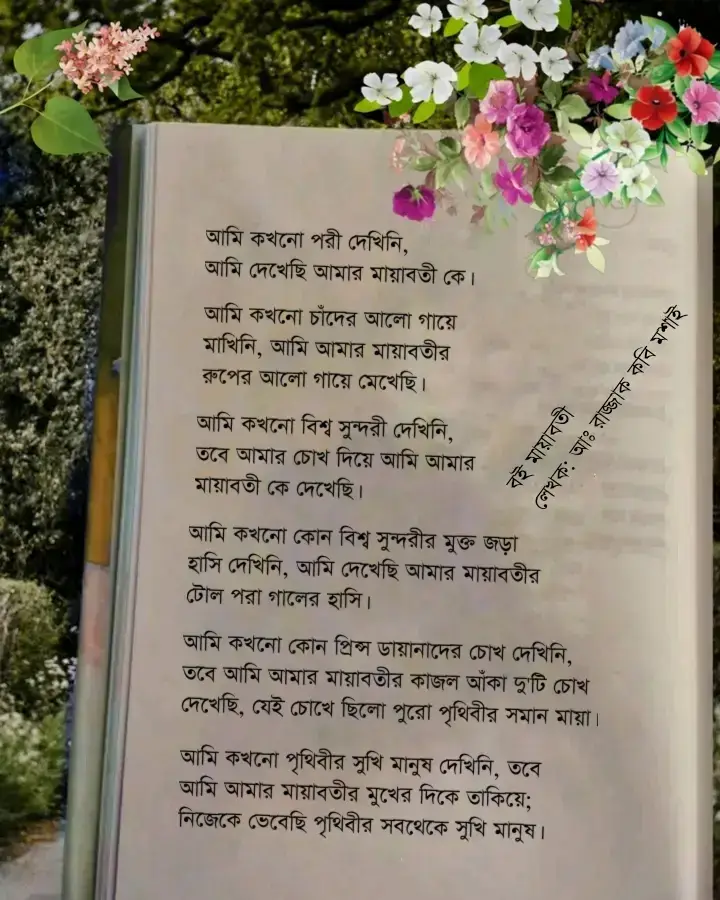 আমি কখনো পরী দেখিনি,
আমি দেখেছি আমার মায়াবতী কে।
আমি কখনো চাঁদের আলো গায়ে
মাখিনি, আমি আমার মায়াবতীর
রুপের আলো গায়ে মেখেছি।
আমি কখনো বিশ্ব সুন্দরী দেখিনি,
তবে আমার চোখ দিয়ে আমি আমার
মায়াবতী কে দেখেছি।
আমি কখনো কোন বিশ্ব সুন্দরীর মুক্ত জড়া
হাসি দেখিনি, আমি দেখেছি আমার মায়াবতীর
টোল পরা গালের হাসি।
আমি কখনো কোন প্রিন্স ডায়ানাদের চোখ দেখিনি,
তবে আমি আমার মায়াবতীর কাজল আঁকা দু'টি চোখ
দেখেছি, যেই চোখে ছিলো পুরো পৃথিবীর সমান মায়া।
আমি কখনো পৃথিবীর সুখি মানুষ দেখিনি, তবে
আমি আমার মায়াবতীর মুখের দিকে তাকিয়ে;
নিজেকে ভেবেছি পৃথিবীর সবথেকে সুখি মানুষ।
বই মায়াবতী
লেখক: আঃ রাজ্জাক কবি মশাই